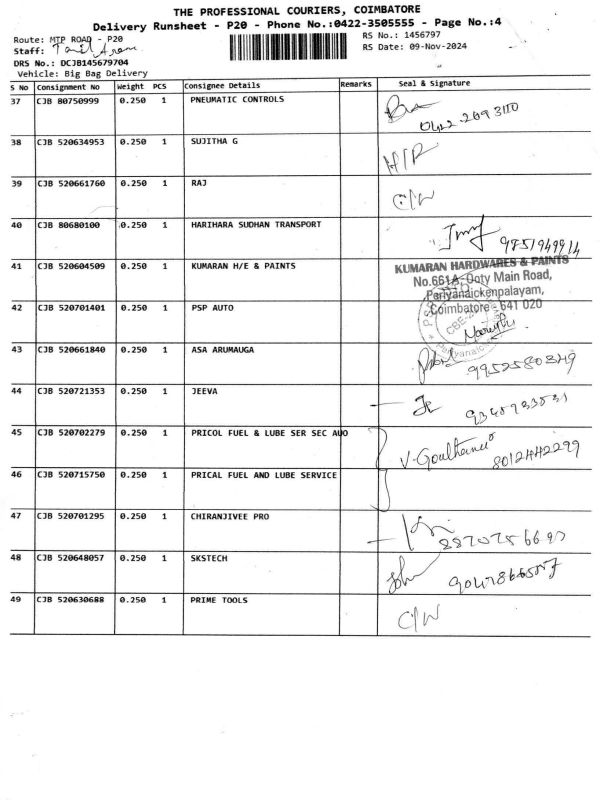 THE PROFESSIONAL COURIERS, COIMBATORE
Delivery Runsheet - P20 - Phone No.:0422-3505555 - Page No.:4
Route: MTP ROAD - P20
RS No.: 1456797
Staff: Tamil
RS Date: 09-Nov-2024
DRS No.: DCJB145679704
Vehicle: Big Bag Delivery
S No Consignment No Weight PCS Consignee Details Remarks Seal & Signature
37 CJB 80750999 0.250 1 PNEUMATIC CONTROLS
38 CJB 520634953 0.250 1 SUJITHA G H/R
39 CJB 520661760 0.250 1 RAJ C/W
40 CJB 80680100 0.250 1 HARIHARA SUDHAN TRANSPORT
41 CJB 520604509 0.250 1 KUMARAN H/E & PAINTS
KUMARAN HARDWARES & PAINTS
No.661A, Ooty Main Road,
Periyanaickenpalayam,
Coimbatore - 641 020
42 CJB 520701401 0.250 1 PSP AUTO
43 CJB 520661840 0.250 1 ASA ARUMAUGA 9952580349
44 CJB 520721353 0.250 1 JEEVA
45 CJB 520702279 0.250 1 PRICOL FUEL & LUBE SER SEC AUO 8012442299
46 CJB 520715750 0.250 1 PRICAL FUEL AND LUBE SERVICE
47 CJB 520701295 0.250 1 CHIRANJIVEE PRO
48 CJB 520648057 0.250 1 SKSTECH
49 CJB 520630688 0.250 1 PRIME TOOLS C/W